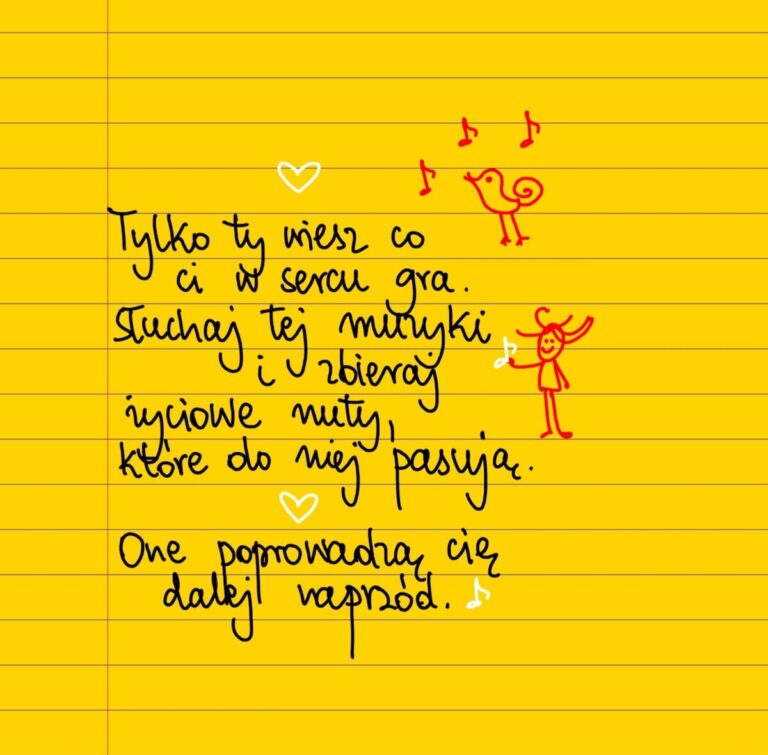 Tylko ty wiesz co
ci w sercu gra.
Słuchaj tej muzyki
i zbieraj
życiowe nuty,
które do niej pasują.
One poprowadzą cię
dalej naprzód.